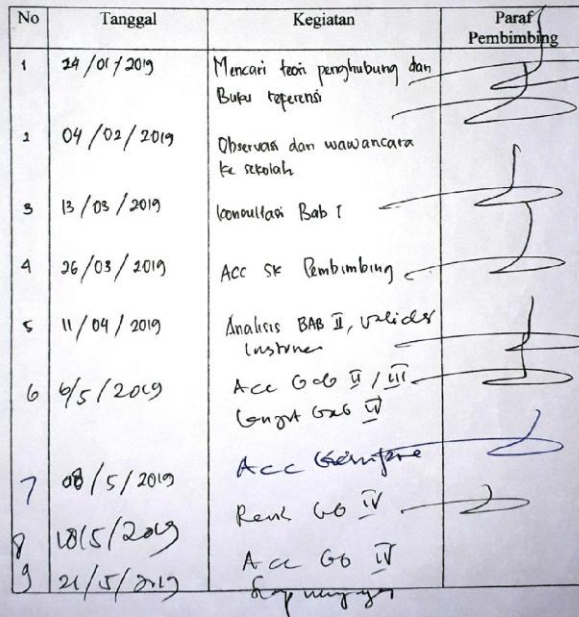 No Tanggal Kegiatan Paraf Pembimbing
1 24/01/2019 Mencari teori penghubung dan
Buku referensi
2 04/02/2019 Observasi dan wawancara
ke sekolah
3 13/03/2019 konsultasi Bab I
4 26/03/2019 Acc SK Pembimbing
5 11/04/2019 Analisis BAB II, validasi
Instrumen
6 6/5/2019 Acc Bab II / III
Lanjut Bab IV
7 08/5/2019 Acc
8 10/5/2019 Bab IV
9 21/5/2019 Acc Bab IV